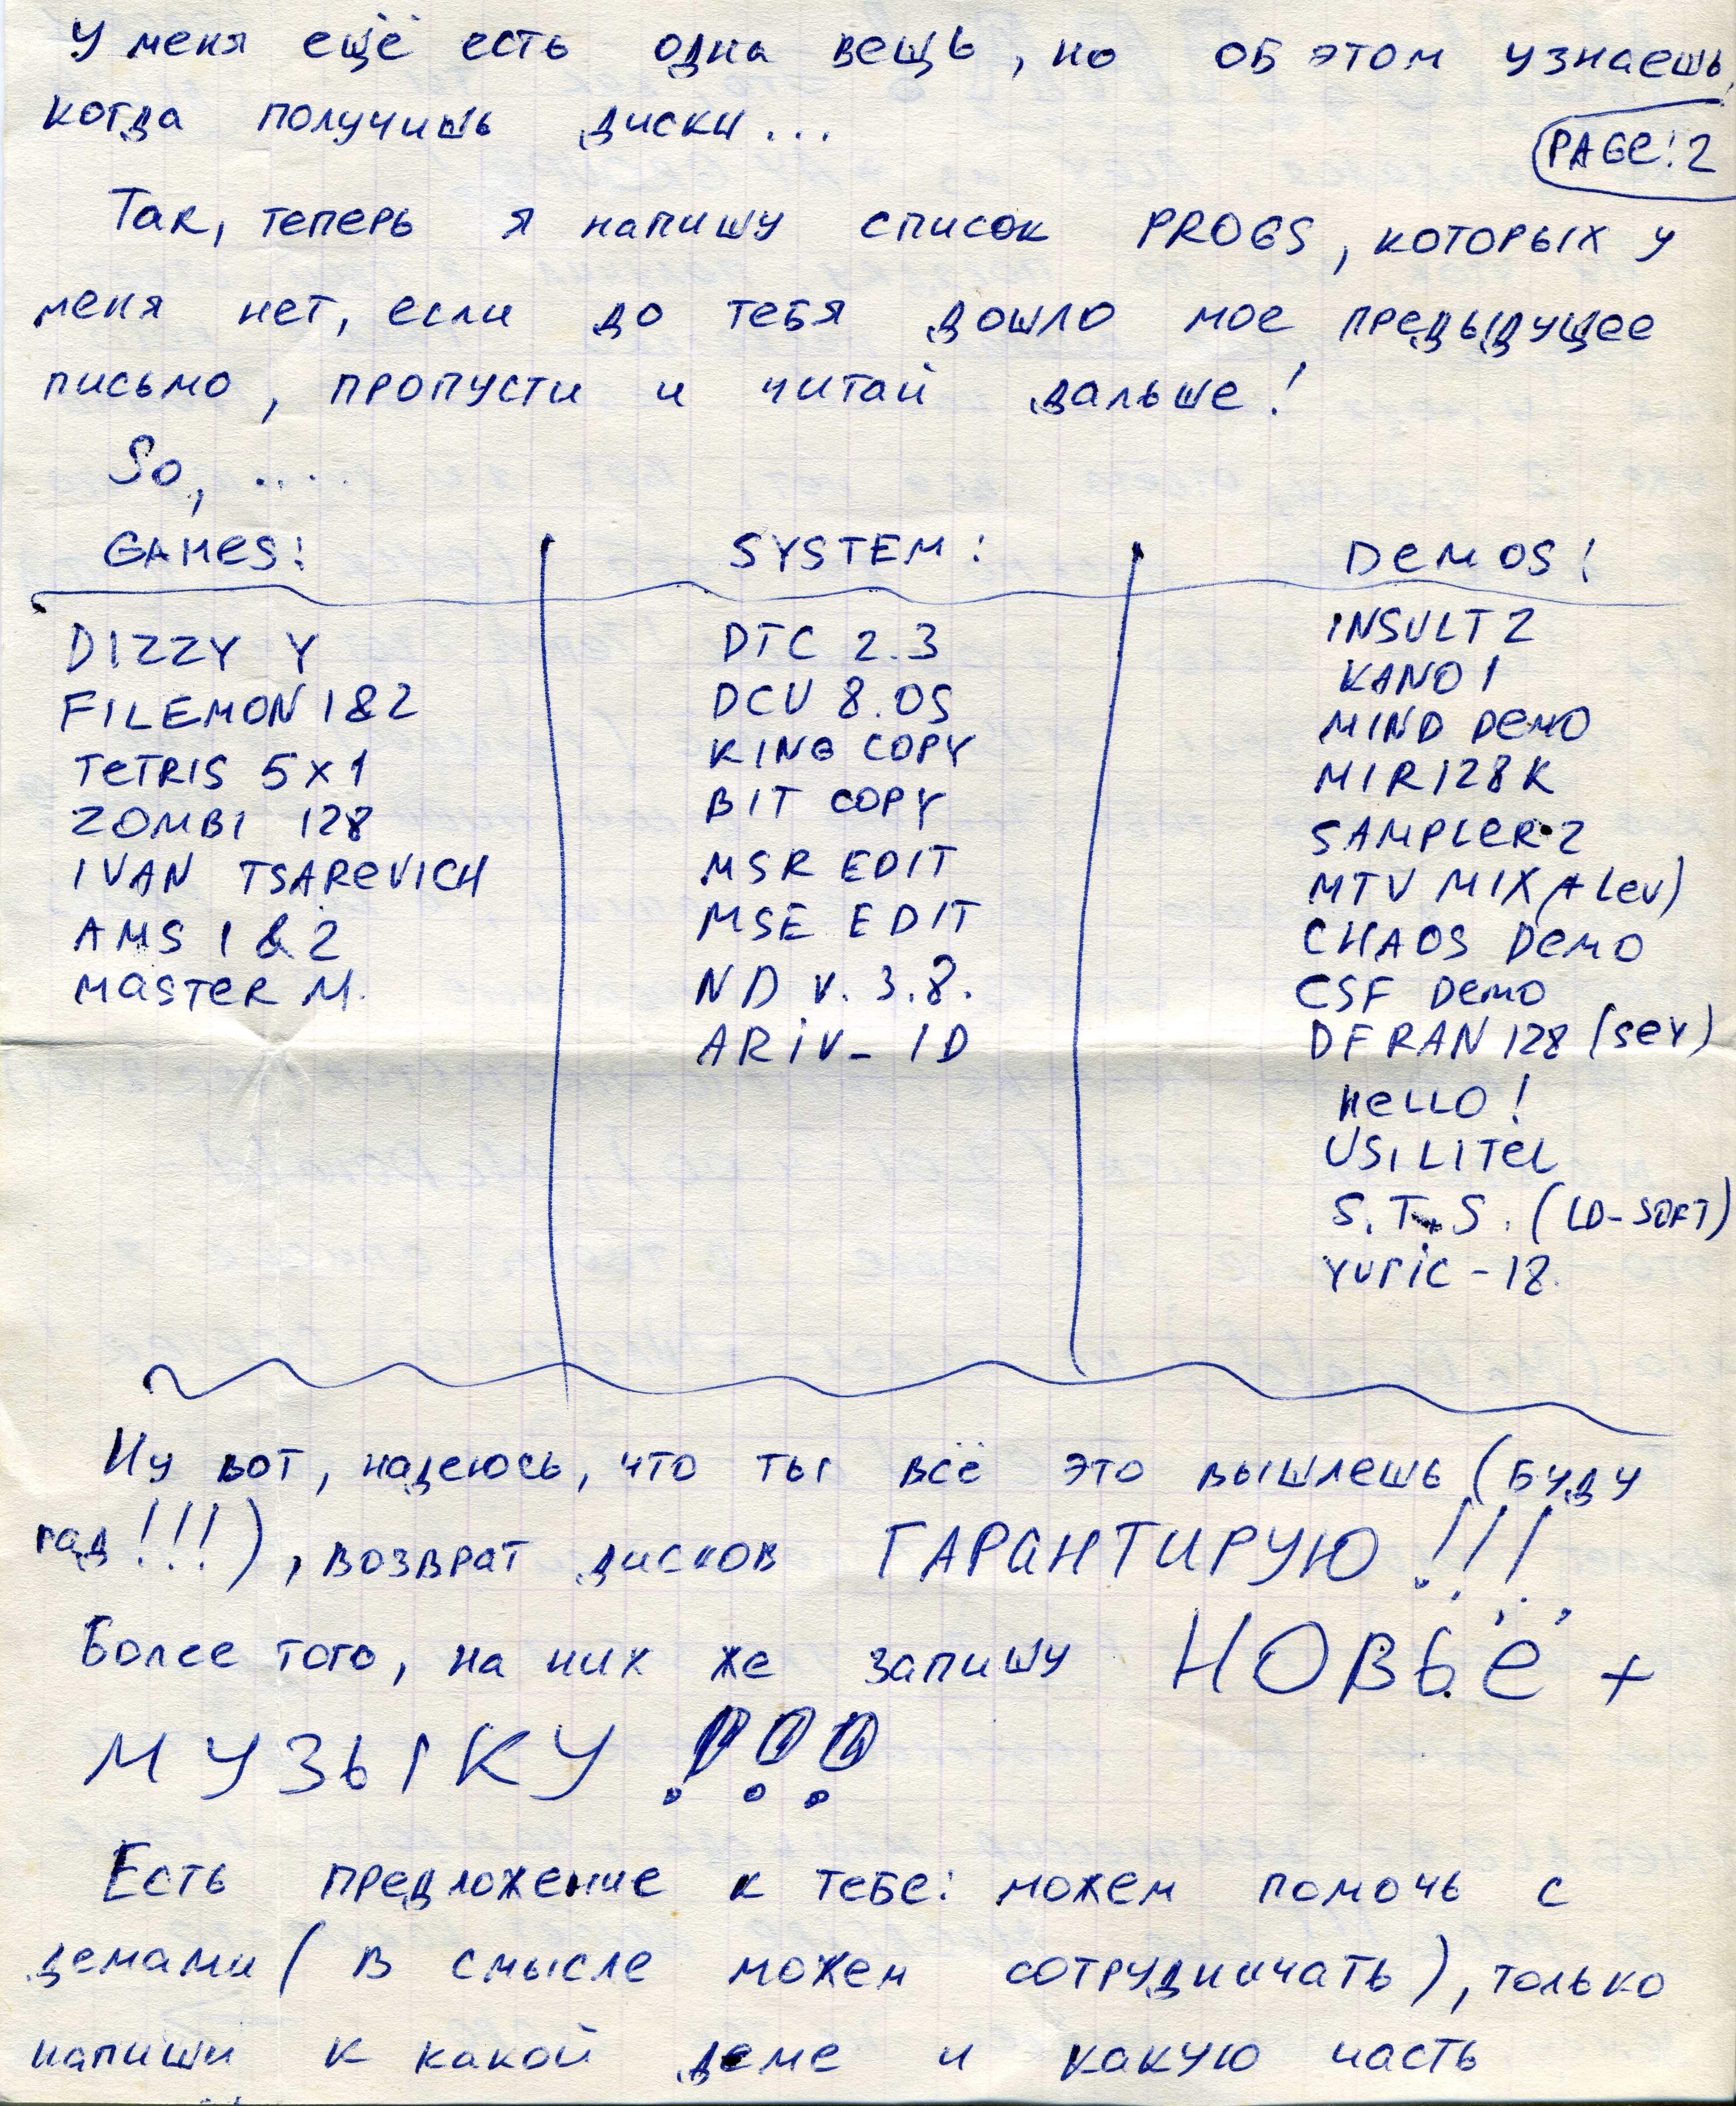 У меня ещё есть одна вещь, но об этом узнаешь,
когда получишь диски...
PAGE: 2
Так, теперь я напишу список PROGS, которых у
меня нет, если до тебя дошло мое предыдущее
письмо, пропусти и читай дальше!
So, ....
GAMES:
DIZZY Y
FILEMON 1&2
TETRIS 5x1
ZOMBI 128
IVAN TSAREVICH
AMS 1 & 2
MASTER M.
SYSTEM:
DTC 2.3
DCU 8.0S
KING COPY
BIT COPY
MSR EDIT
MSE EDIT
ND v. 3.8.
ARiV_ID
DEMOS:
INSULT 2
KANO 1
MIND DEMO
MIR128K
SAMPLER 2
MTV MIX (+ Lev)
CHAOS DEMO
CSF DEMO
DFRAN 128 (seY)
HELLO!
USILITEL
S.T.S. (LD-SOFT)
YURIC-18.
Ну вот, надеюсь, что ты всё это вышлешь (буду
рад!!!), возврат дисков ГАРАНТИРУЮ!!!
Более того, на них же запишу НОВЬЁ +
МУЗЫКУ!!!
Есть предложение к тебе: можем помочь с
демами (в смысле можем сотрудничать), только
напиши к какой деме и какую часть